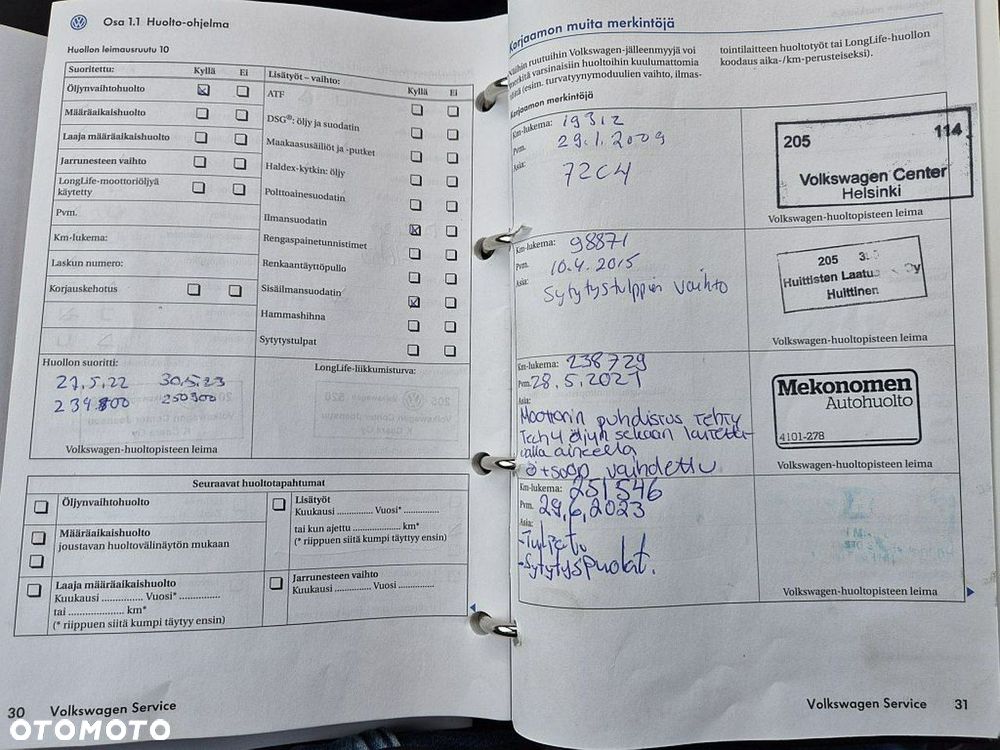 Osa 1.1 Huolto-ohjelma
Huollon leimausruutu 10
Suoritettu: Kyllä Ei
Öljynvaihtohuolto
Määräaikaishuolto
Laaja määräaikaishuolto
Jarrunesteen vaihto
LongLife-moottoriöljyä
käytetty
Pvm.
Km-lukema:
Laskun numero:
Korjauskehotus
Lisätyöt – vaihto:
Kyllä Ei
ATF
DSG®: öljy ja suodatin
Maakaasusäiliöt ja -putket
Haldex-kytkin: öljy
Polttoainesuodatin
Ilmansuodatin
Rengaspainetunnistimet
Renkaantäyttöpullo
Sisäilmansuodatin
Hammashihna
Sytytystulpat
Huollon suoritti:
27.5.22 30.5.23
234800 250900
Volkswagen-huoltopisteen leima
LongLife-liikkumisturva:
Seuraavat huoltotapahtumat
Öljynvaihtohuolto
Määräaikaishuolto
joustavan huoltovälinäytön mukaan
Laaja määräaikaishuolto
Kuukausi .............. Vuosi* ..............
tai ................... km*
(* riippuen siitä kumpi täytyy ensin)
Lisätyöt
Kuukausi ............ Vuosi* ............
tai kun ajettu ................ km*
(* riippuen siitä kumpi täytyy ensin)
Jarrunesteen vaihto
Kuukausi ............ Vuosi ............
30 Volkswagen Service
Korjaamon muita merkintöjä
Näihin ruutuihin Volkswagen-jälleenmyyjä voi
merkitä varsinaisiin huoltoihin kuulumattomia
töitä (esim. turvatyynymoduulien vaihto, ilmas-
tointilaitteen huoltotyöt tai LongLife-huollon
koodaus aika-/km-perusteiseksi).
Korjaamon merkintöjä
Km-lukema: 19312
Pvm. 29.1.2009
Asia: 72C4
205 114
Volkswagen Center
Helsinki
Volkswagen-huoltopisteen leima
Km-lukema: 98871
Pvm. 10.4.2015
Asia: Sytytystulppien vaihto
205
Huittisten Oy
Huittinen
Volkswagen-huoltopisteen leima
Km-lukema: 238729
Pvm. 28.5.2021
Asia:
Moottorin puhdistus tehty
Tech4 öljyn sekaan
aineella
vaihdettu
Mekonomen
Autohuolto
4101-278
Volkswagen-huoltopisteen leima
Km-lukema: 251546
Pvm. 29.6.2023
Asia:
-Sytytyspuolat.
Volkswagen-huoltopisteen leima
Volkswagen Service 31
OTOMOTO